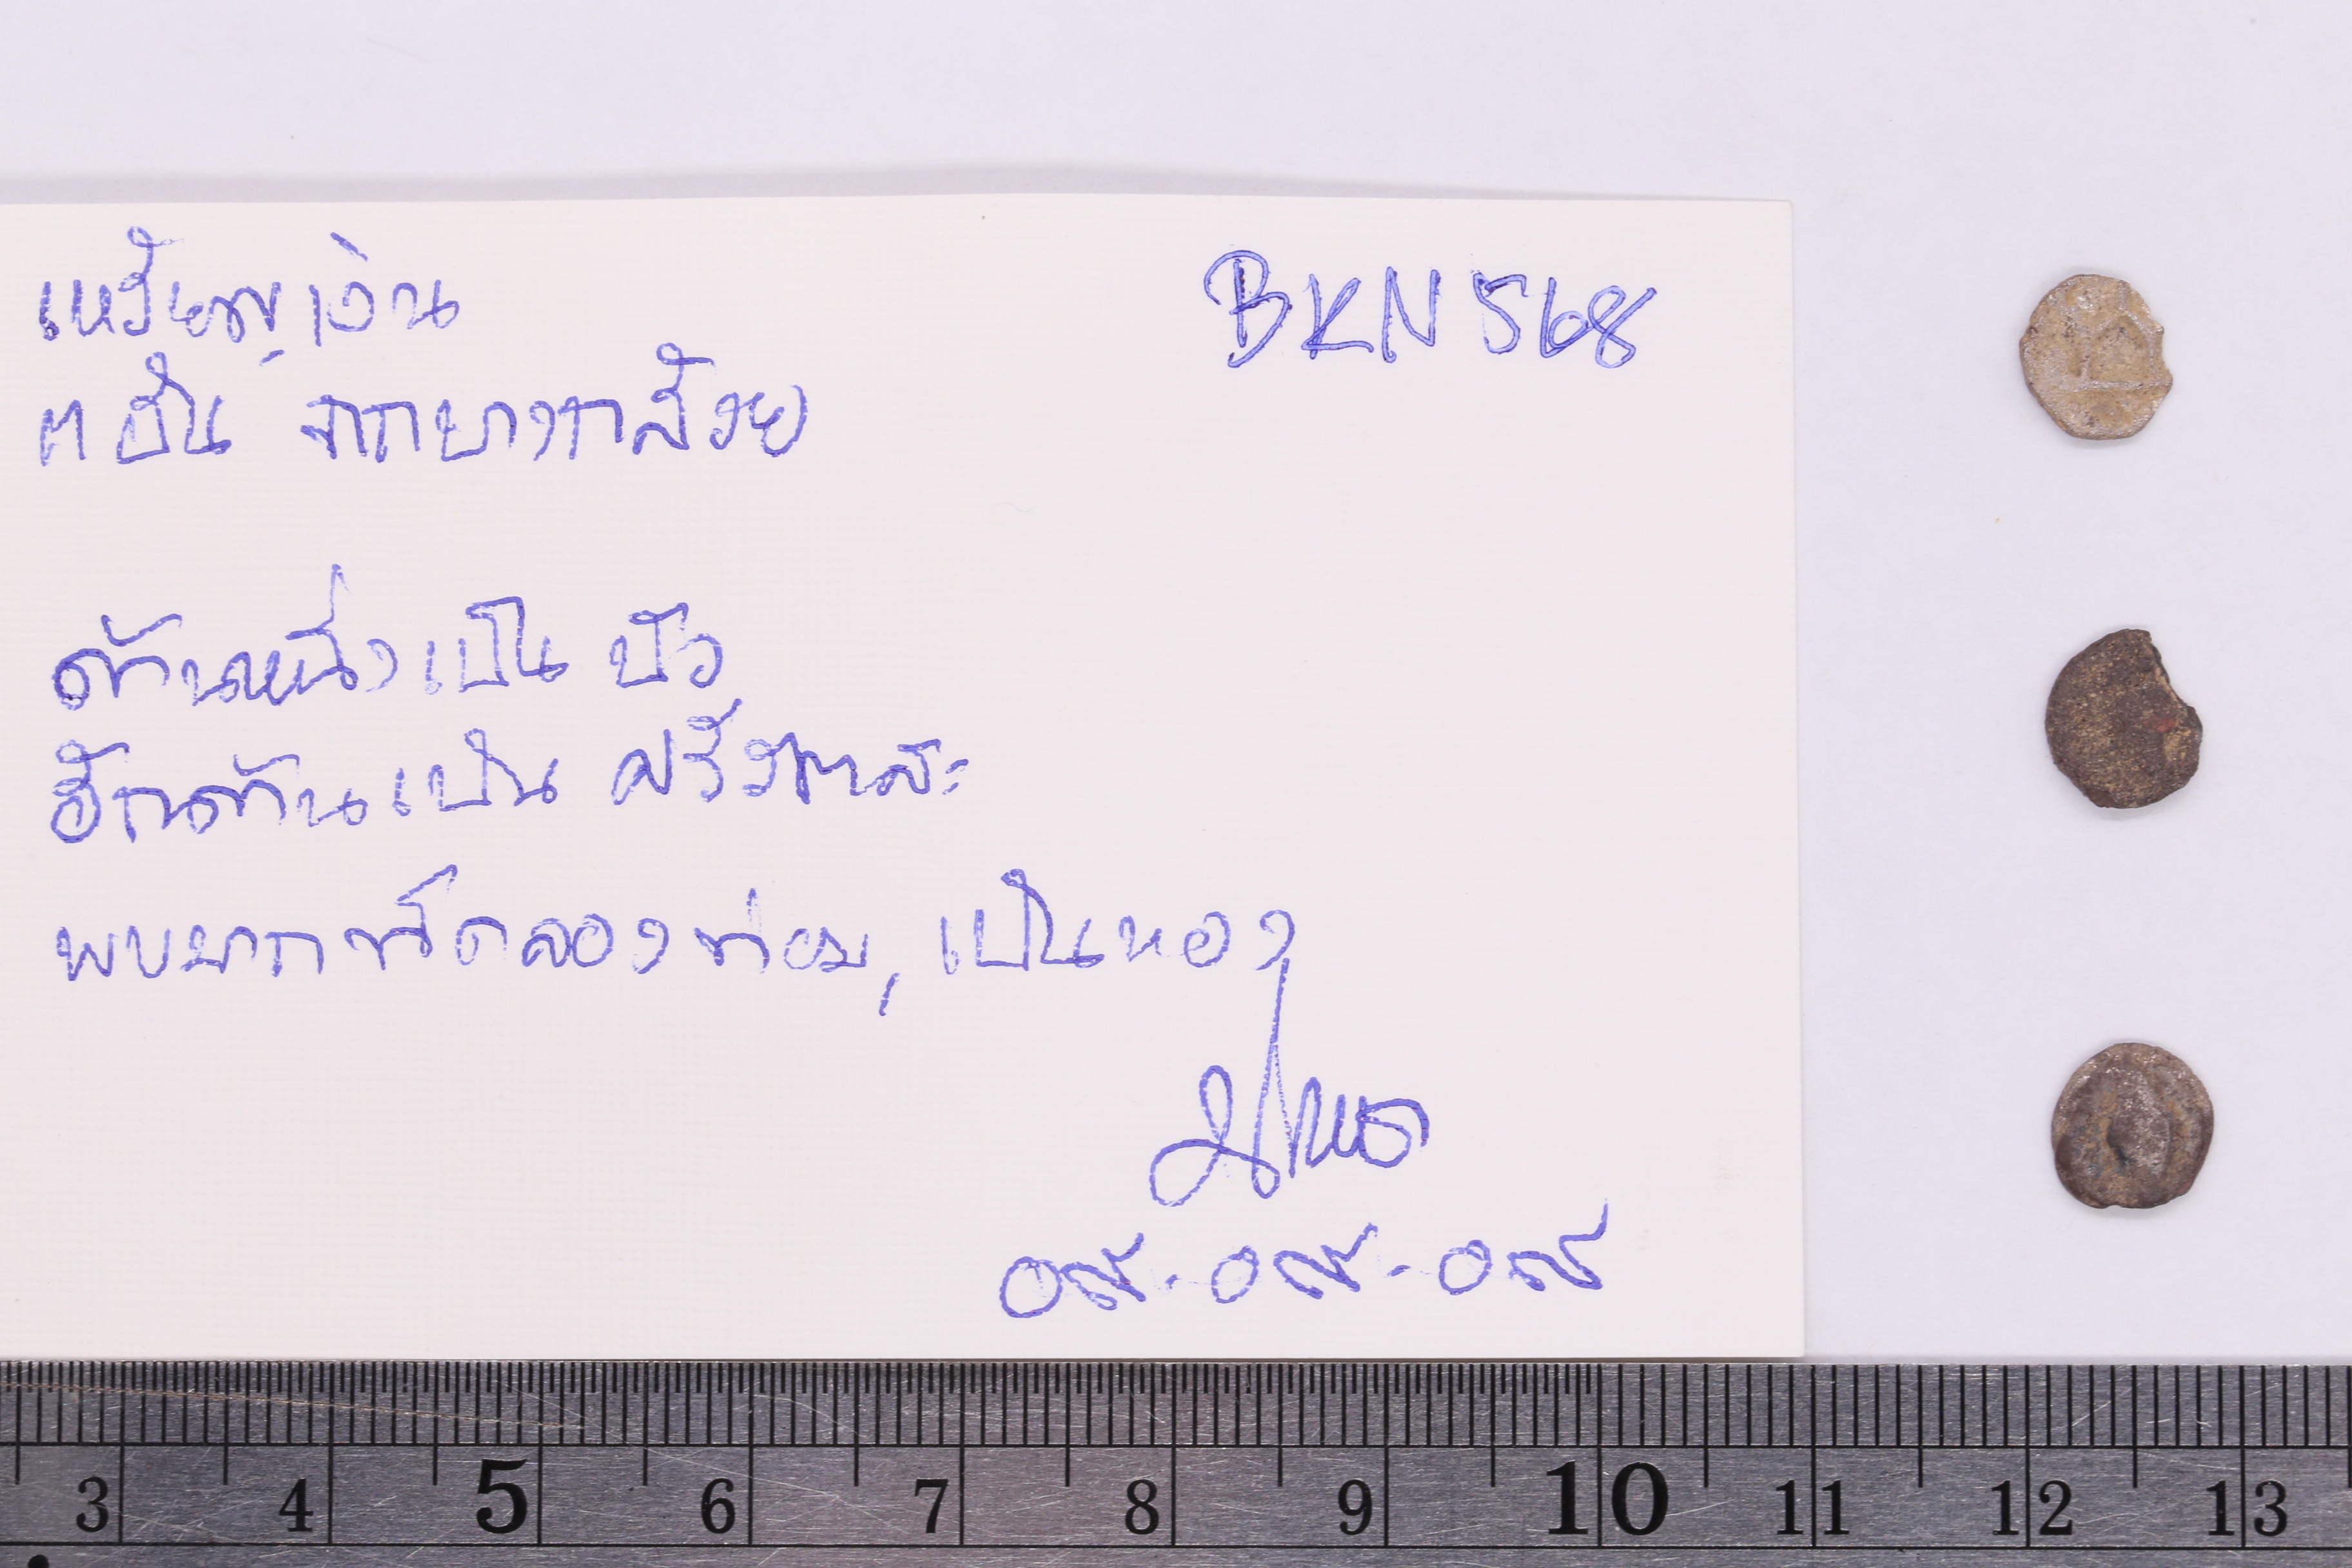 เหรียญเงิน
BKN568
๓ อัน จากบางกล้วย
ด้านหนึ่งเป็น บัว
อีกด้านเป็น ศรีวัตสะ
พบมากที่คลองท่อม, เป็นทอง
๐๙-๐๙-๐๙
3 4 5 6 7 8 9 10 11 12 13